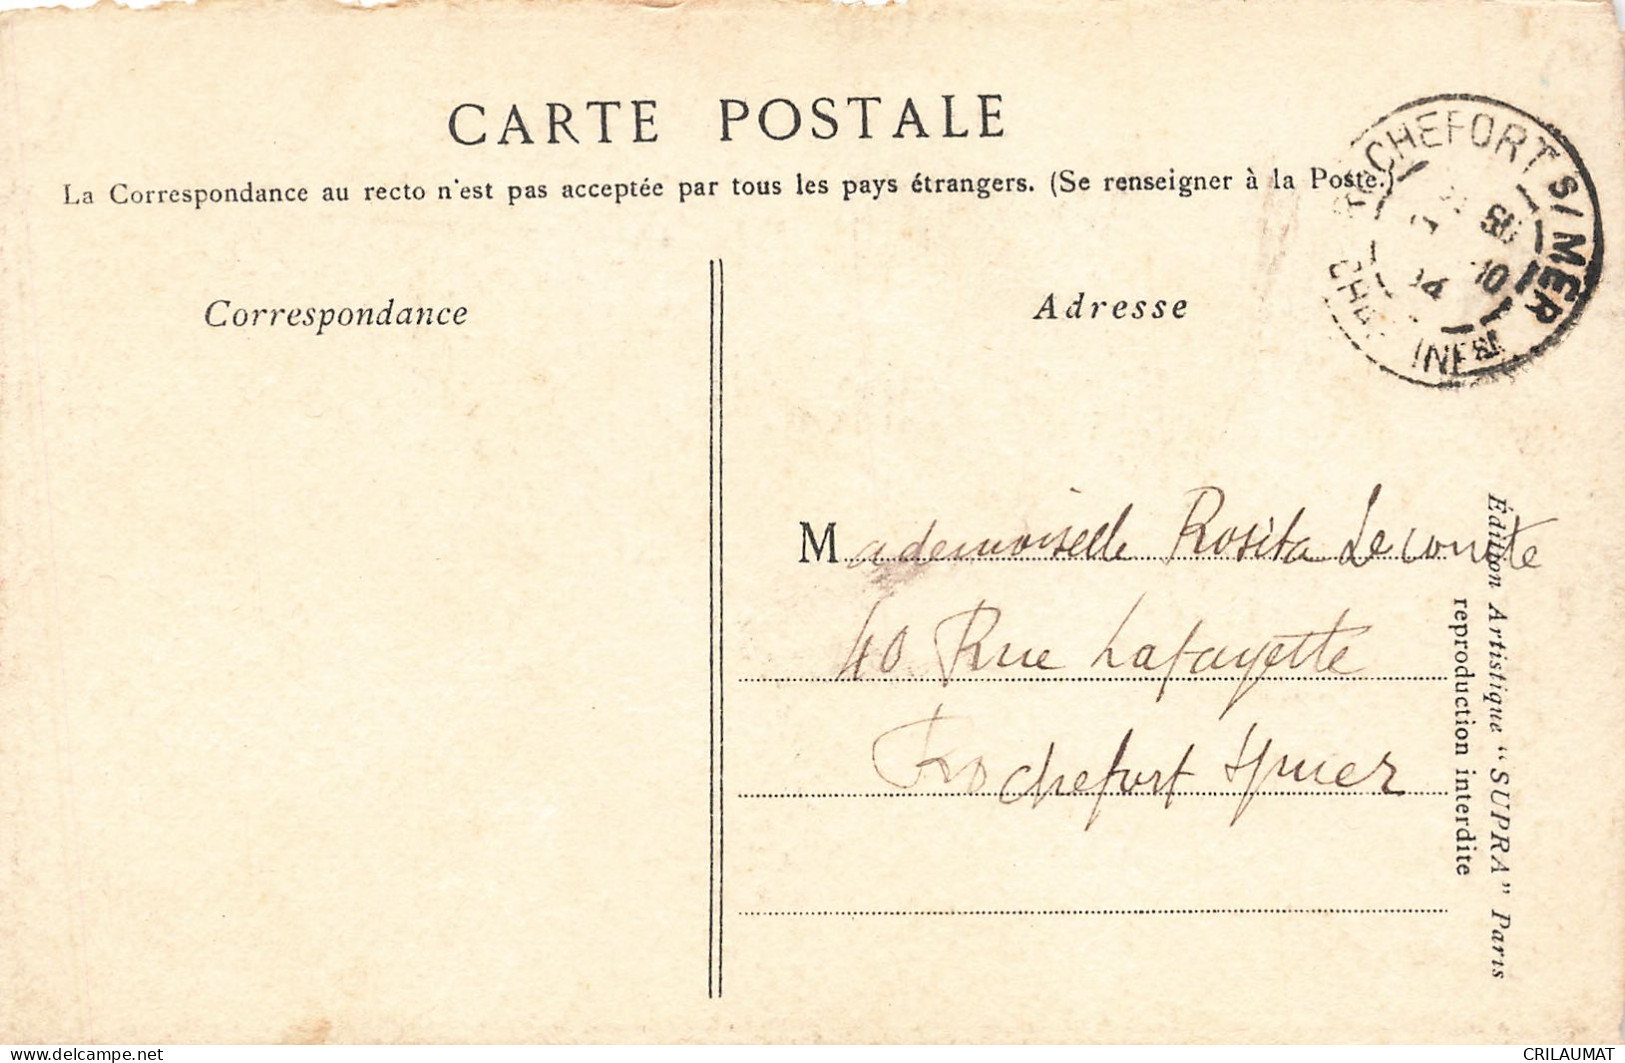 CARTE POSTALE
La Correspondance au recto n'est pas acceptée par tous les pays étrangers. (Se renseigner à la Poste.)
ROCHEFORT S/ MER
10
14
CHE INFRE
Correspondance
Adresse
Mademoiselle Rosita Lecomte
40 Rue Lafayette
Rochefort s/mer
Édition Artistique "SUPRA" Paris
reproduction interdite
www.delcampe.net
CRILAUMAT